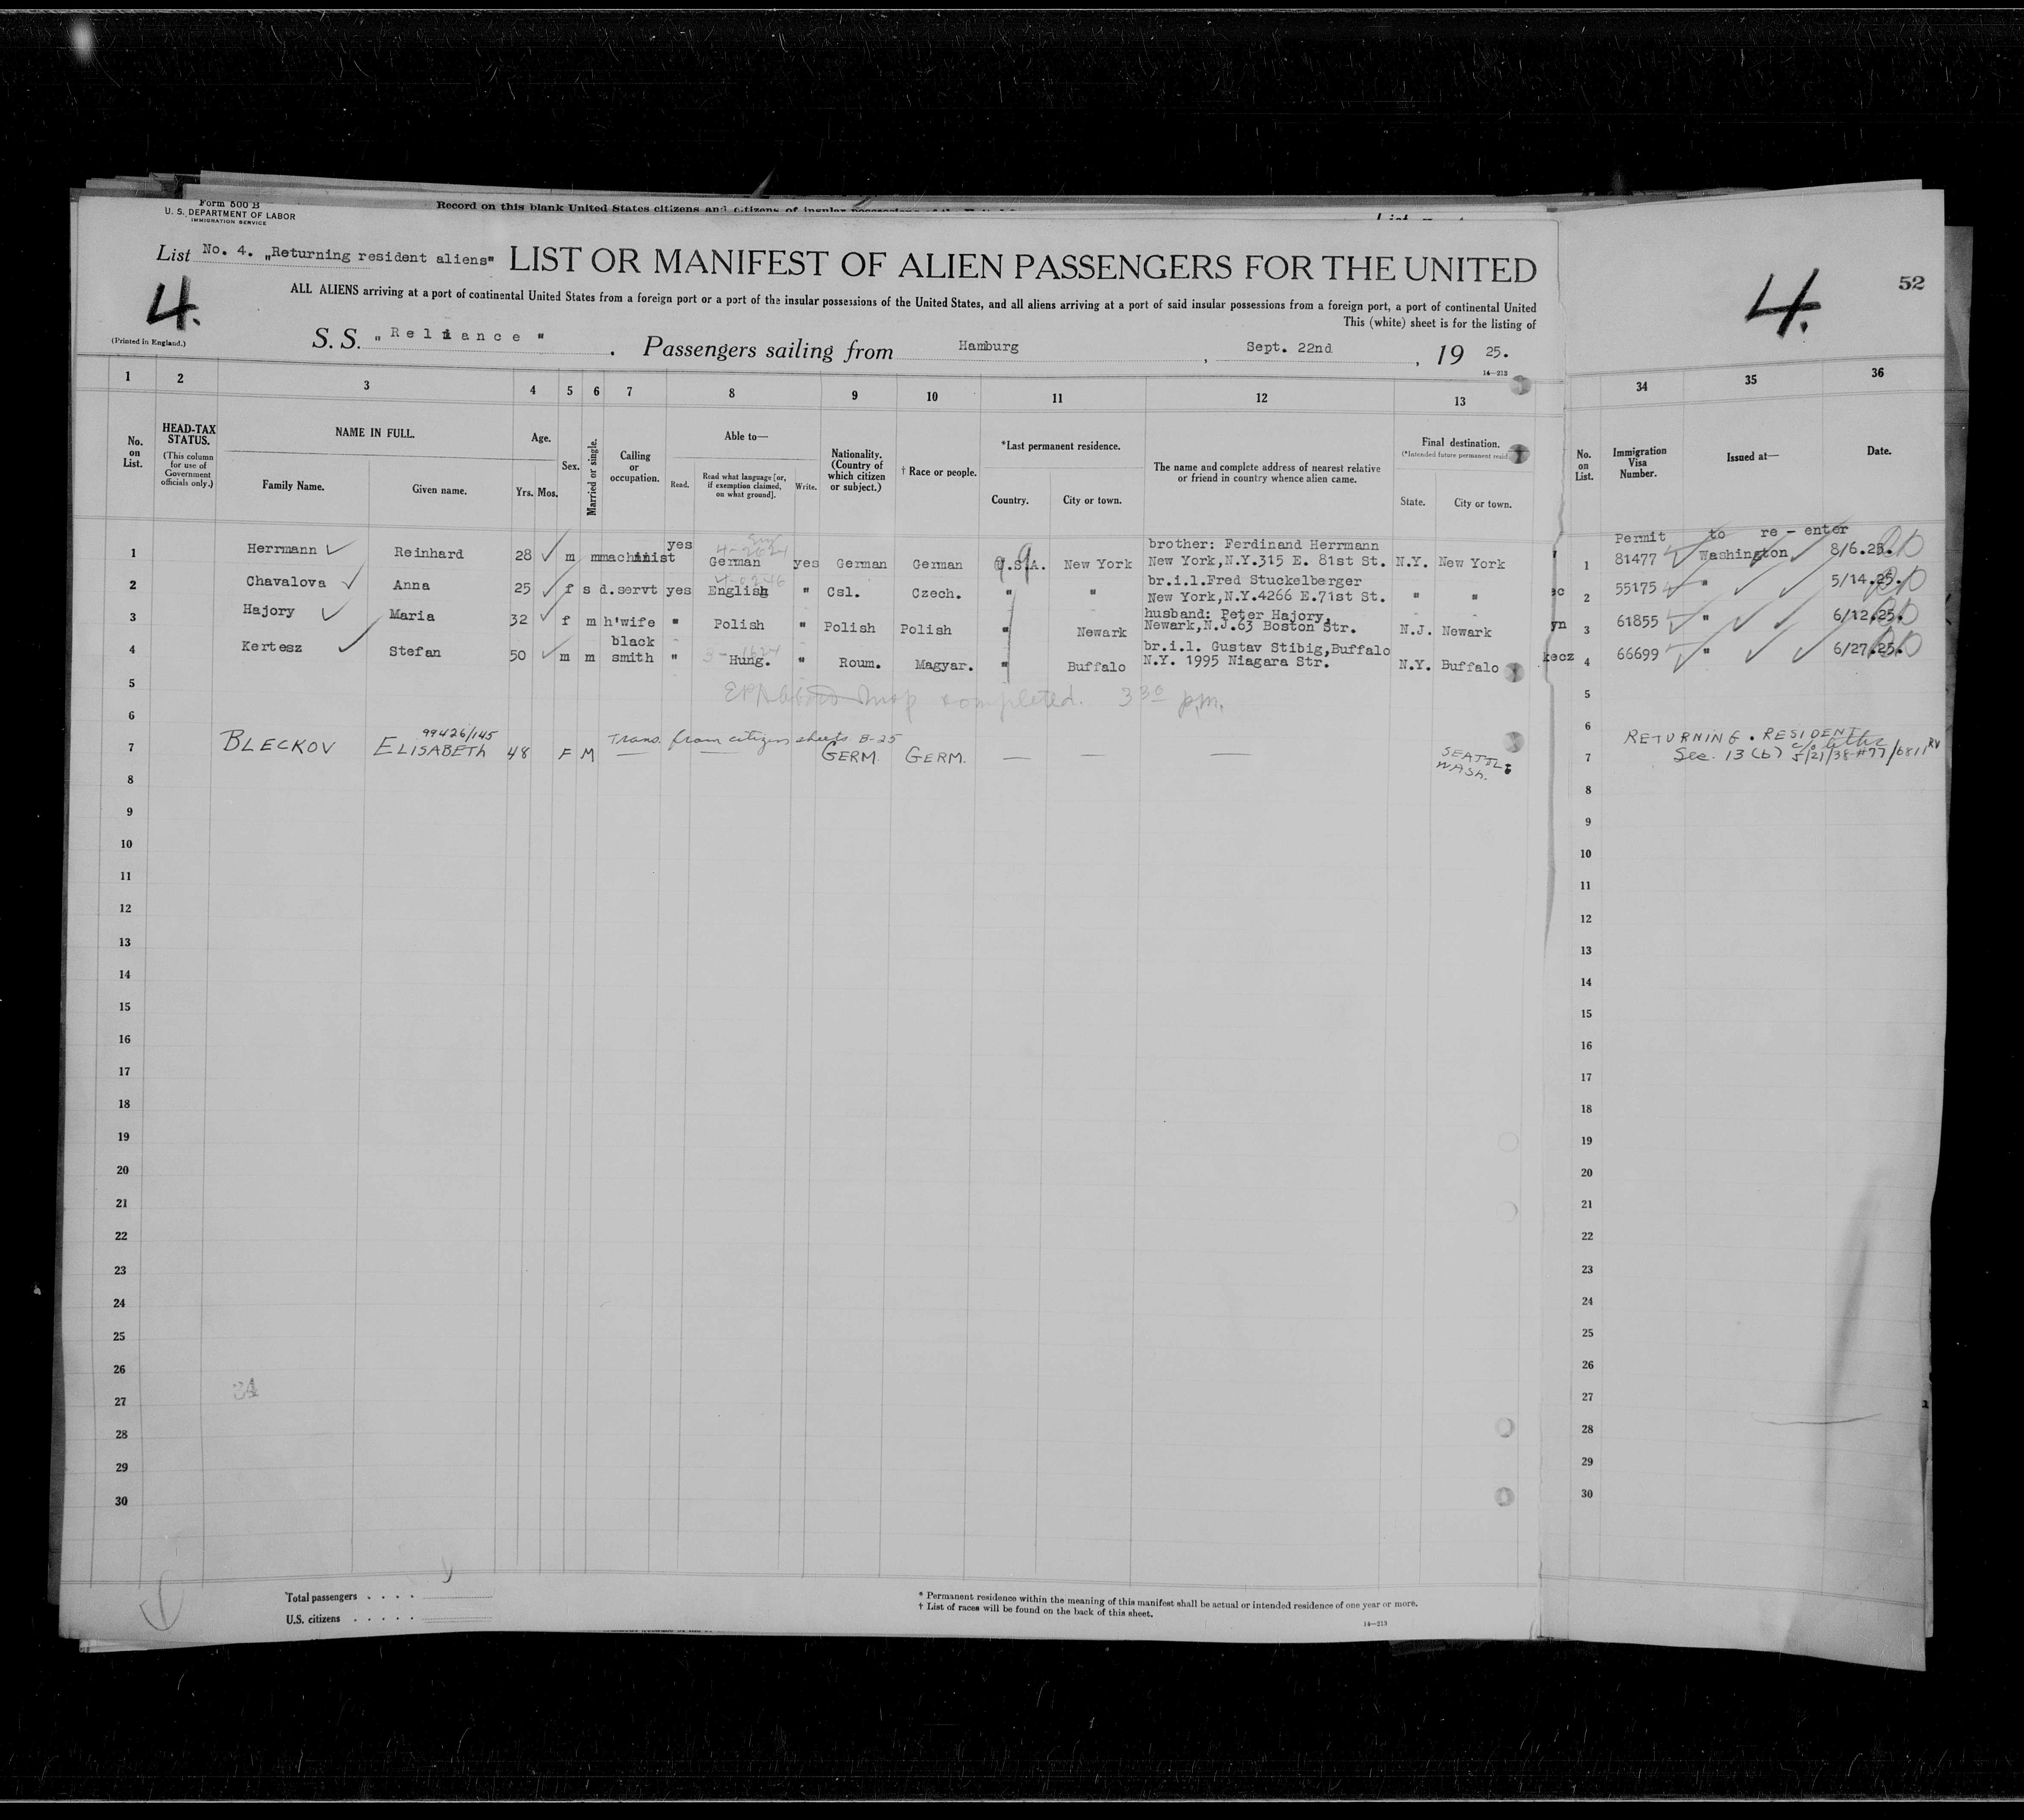 Form 500 B
U. S. DEPARTMENT OF LABOR
IMMIGRATION SERVICE
Record on this blank United States citizens and citizens of insular possessions of the
List
List No. 4. „Returning resident aliens" LIST OR MANIFEST OF ALIEN PASSENGERS FOR THE UNITED
4.
4.
52
ALL ALIENS arriving at a port of continental United States from a foreign port or a port of the insular possessions of the United States, and all aliens arriving at a port of said insular possessions from a foreign port, a port of continental United
This (white) sheet is for the listing of
(Printed in England.)
S. S. „ Reliance " . Passengers sailing from Hamburg , Sept. 22nd , 19 25.
14—213
1 2 3 4 5 6 7 8 9 10 11 12 13 34 35 36
No. on List.
HEAD-TAX STATUS.
(This column for use of Government officials only.)
NAME IN FULL.
Family Name. Given name.
Age.
Yrs. Mos.
Sex.
Married or single.
Calling or occupation.
Able to—
Read. Read what language [or, if exemption claimed, on what ground]. Write.
Nationality. (Country of which citizen or subject.)
† Race or people.
*Last permanent residence.
Country. City or town.
The name and complete address of nearest relative or friend in country whence alien came.
Final destination.
(*Intended future permanent resid
State. City or town.
No. on List.
Immigration Visa Number.
Issued at—
Date.
Permit to re - enter
1 Herrmann Reinhard 28 m m machinist yes German yes German German U.S.A. New York brother: Ferdinand Herrmann
New York,N.Y.315 E. 81st St. N.Y. New York 1 81477 Washington 8/6.25.
2 Chavalova Anna 25 f s d.servt yes English " Csl. Czech. " " br.i.l.Fred Stuckelberger
New York,N.Y.4266 E.71st St. " " 2 55175 " 5/14.25.
3 Hajory Maria 32 f m h'wife " Polish " Polish Polish " Newark husband: Peter Hajory,
Newark,N.J.63 Boston Str. N.J. Newark yn 3 61855 " 6/12.25.
4 Kertesz Stefan 50 m m black smith " Hung. " Roum. Magyar. " Buffalo br.i.l. Gustav Stibig,Buffalo
N.Y. 1995 Niagara Str. N.Y. Buffalo kecz 4 66699 " 6/27.25.
5 5
completed. 3 30 p.m.
6 6
99426/145 Trans. from citizen sheets B-25
7 BLECKOV ELISABETH 48 F M — — GERM. GERM. — — — SEATTLE WASH. 7
RETURNING . RESIDENT
Sec. 13 (b) c/o letter 5/21/38-#77/6811 RV
8 8
9 9
10 10
11 11
12 12
13 13
14 14
15 15
16 16
17 17
18 18
19 19
20 20
21 21
22 22
23 23
24 24
25 25
26 26
27 27
28 28
29 29
30 30
Total passengers . . . .
U.S. citizens . . . . .
* Permanent residence within the meaning of this manifest shall be actual or intended residence of one year or more.
† List of races will be found on the back of this sheet.
14—213